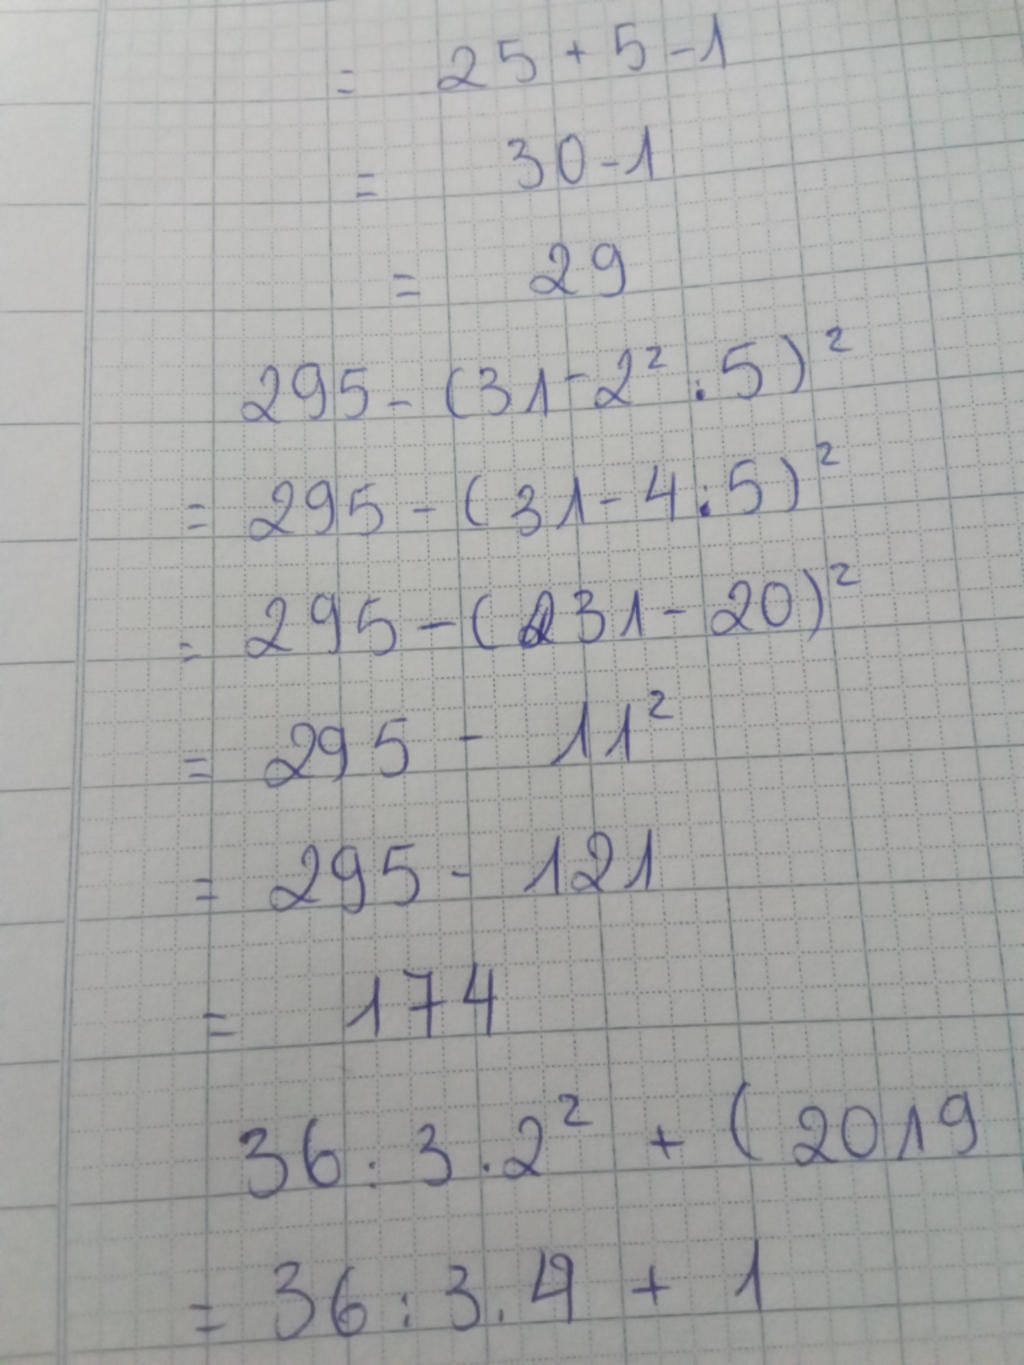 = 25 + 5 - 1
= 30 - 1
= 29
295 - (31 - 2² . 5)²
= 295 - (31 - 4 : 5)²
= 295 - (31 - 20)²
= 295 - 11²
= 295 - 121
= 174
36 : 3 . 2² + ( 2019
= 36 : 3 . 4 + 1